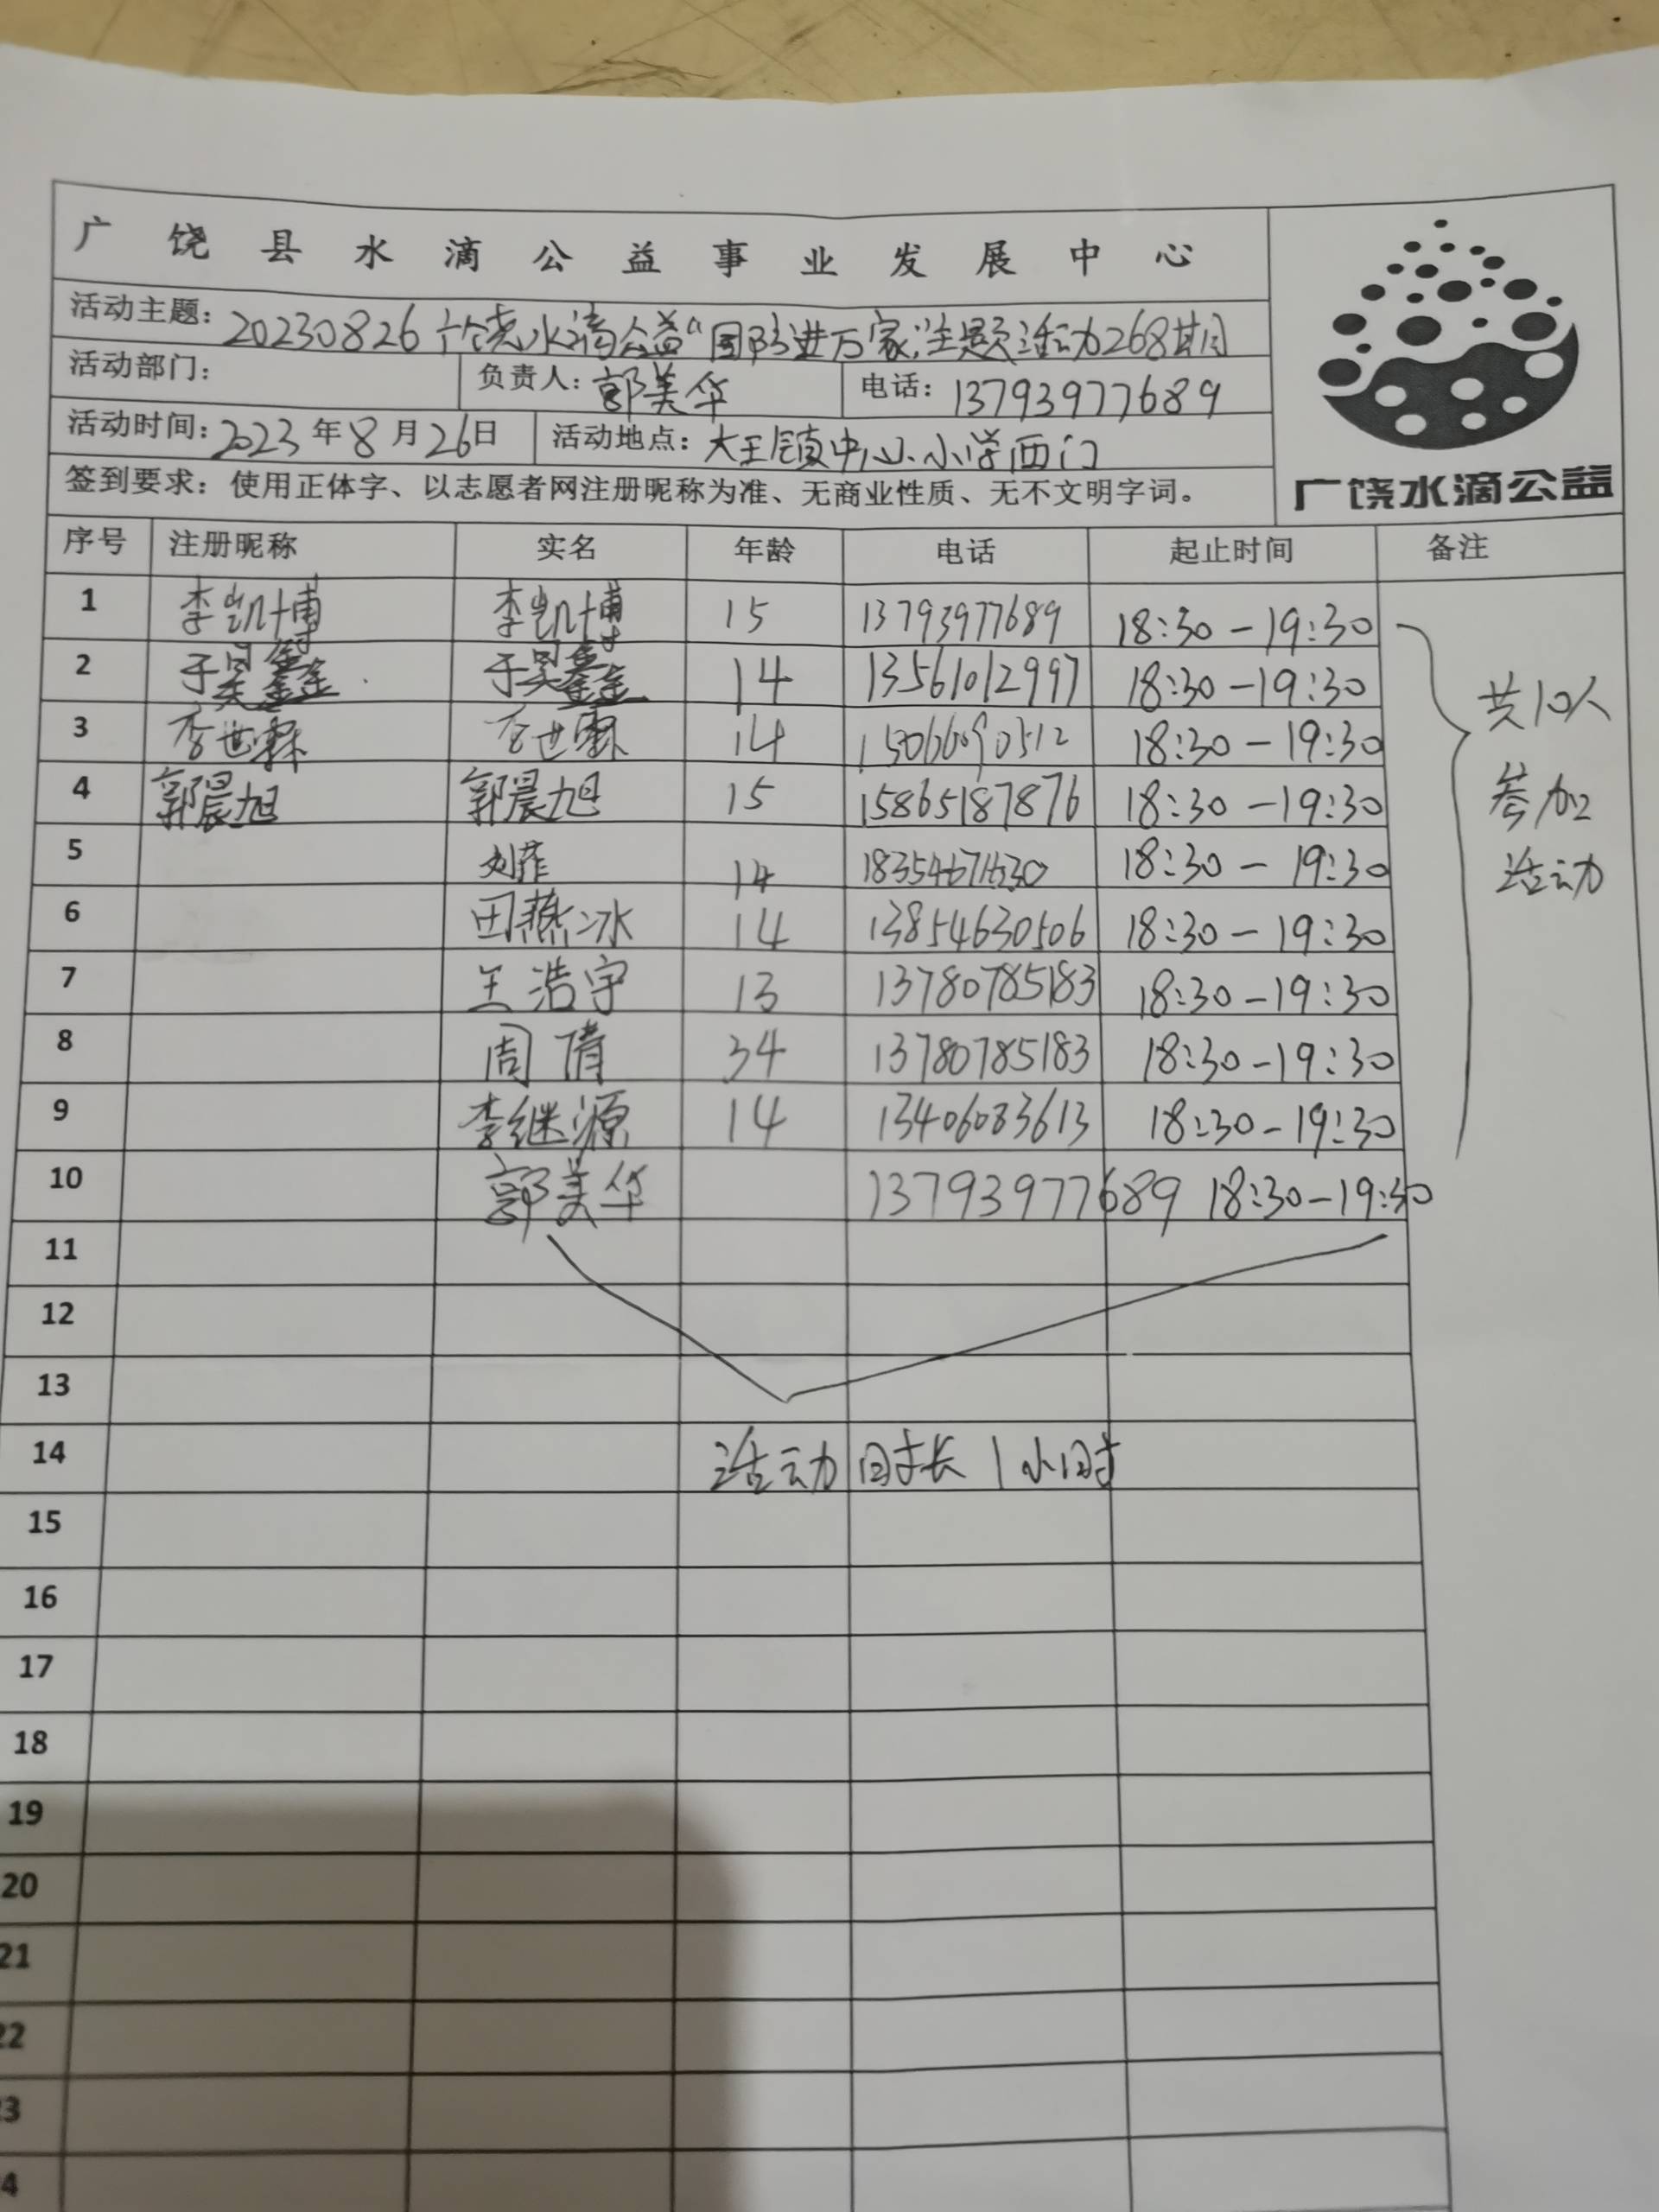 广饶县水滴公益事业发展中心
活动主题：20230826广饶水滴公益“国防进万家”主题活动268期
活动部门： 负责人：郭美华 电话：13793977689
活动时间：2023年8月26日 活动地点：大王镇中心小学西门
签到要求：使用正体字、以志愿者网注册昵称为准、无商业性质、无不文明字词。
广饶水滴公益
序号 注册昵称 实名 年龄 电话 起止时间 备注
1 李凯博 李凯博 15 13793977689 18:30-19:30
2 于昊鑫 于昊鑫 14 13561012997 18:30-19:30
3 李世霖 李世霖 14 15066090312 18:30-19:30
4 郭晨旭 郭晨旭 15 15865187876 18:30-19:30
5 14 18:30-19:30
6 田燕冰 14 13854630506 18:30-19:30
7 王浩宇 13 13780785183 18:30-19:30
8 周倩 34 13780785183 18:30-19:30
9 李继源 14 13406083613 18:30-19:30
10 郭美华 13793977689 18:30-19:30
共10人
参加
活动
11
12
13
14 活动时长1小时
15
16
17
18
19
20
21
22
23